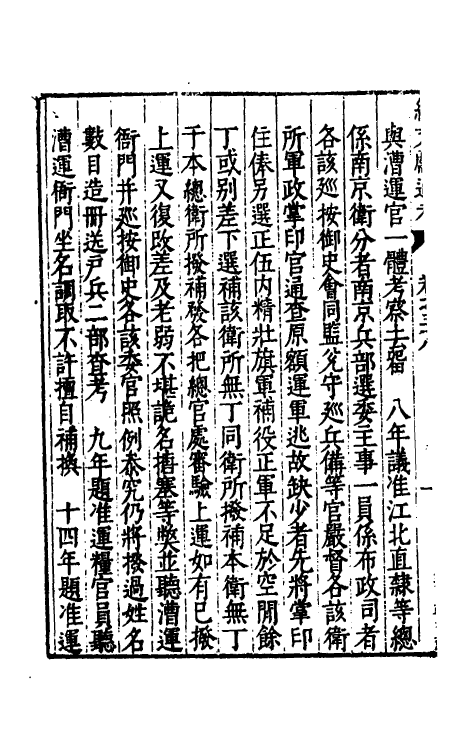 與漕運官一體考察去留　八年議准江北直隸等總
係南京衛分者南京兵部選委主事一員係布政司者
各該廵按御史會同監兌守廵兵備等官嚴督各該衛
所軍政掌印官通查原額運軍逃故缺少者先將掌印
住俸另選正伍內精壯旗軍補役正軍不足於空閒餘
丁或別差下選補該衛所無丁同衛所撥補本衛無丁
于本總衛所撥補發各把總官處審驗上運如有已撥
上運又復改差及老弱不堪詭名搪塞等弊並聽漕運
衙門并廵按御史各該委官照例叅究仍將撥過姓名
數目造冊送戶兵二部查考　九年題准運糧官員聽
漕運衙門坐名調取不許擅自補換　十四年題准運